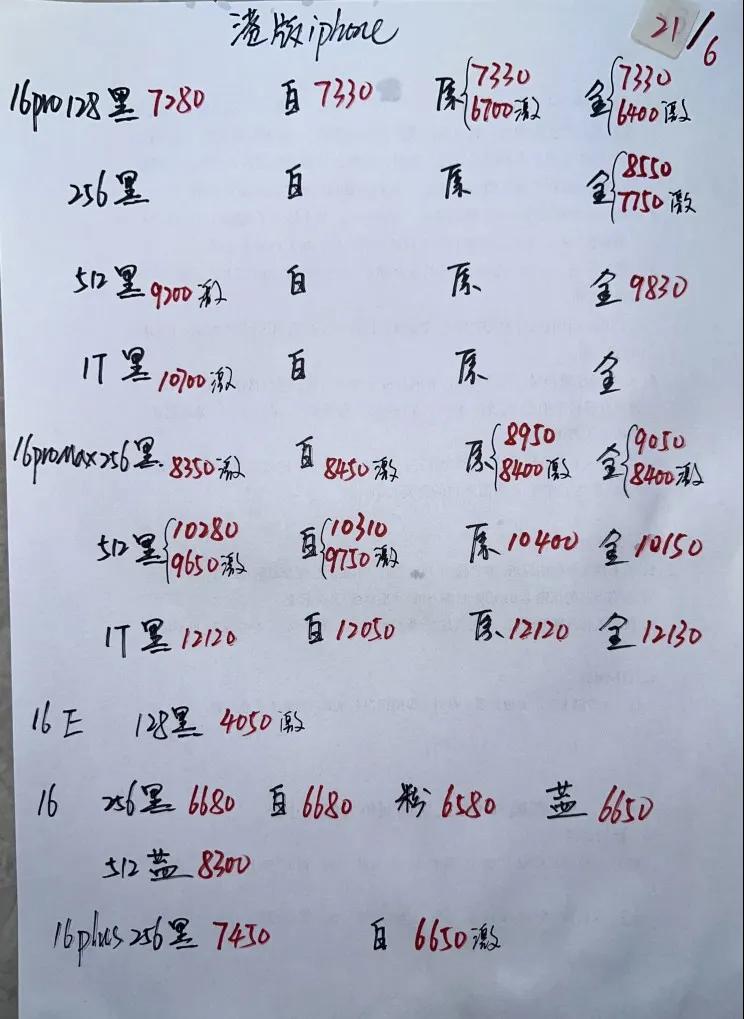 港版iphone 21/6
16pro128黑 7280 白 7330 原 7330 6700激 金 7330 6400激
256黑 白 原 金 8550 7750激
512黑 9200激 白 原 金 9830
1T黑 10700激 白 原 金
16proMax256黑 8350激 白 8450激 原 8950 8400激 金 9050 8400激
512黑 10280 9650激 白 10310 9750激 原 10400 金 10150
1T黑 12120 白 12050 原 12120 金 12130
16E 128黑 4050激
16 256黑 6680 白 6680 粉 6580 蓝 6650
512蓝 8300
16plus256黑 7450 白 6650激